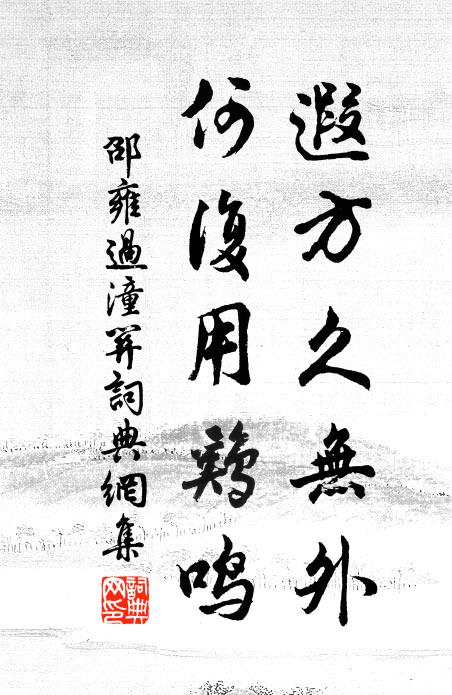 遐方久無外
何復用鷄鳴
邵雍過潼関詞典網集
詞典网印